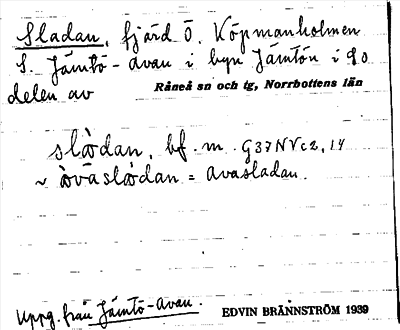 Sladan, fjärd Ö. Köpmanholmen
S. Jämtö-avan i byn Jämtön i So
delen av Råneå sn och tg, Norrbottens län
slådan, bf. m. G37NVc2,14
~ åvaslådan = avasladan.
Uppg. från Jämtö-avan. EDVIN BRÄNNSTRÖM 1939